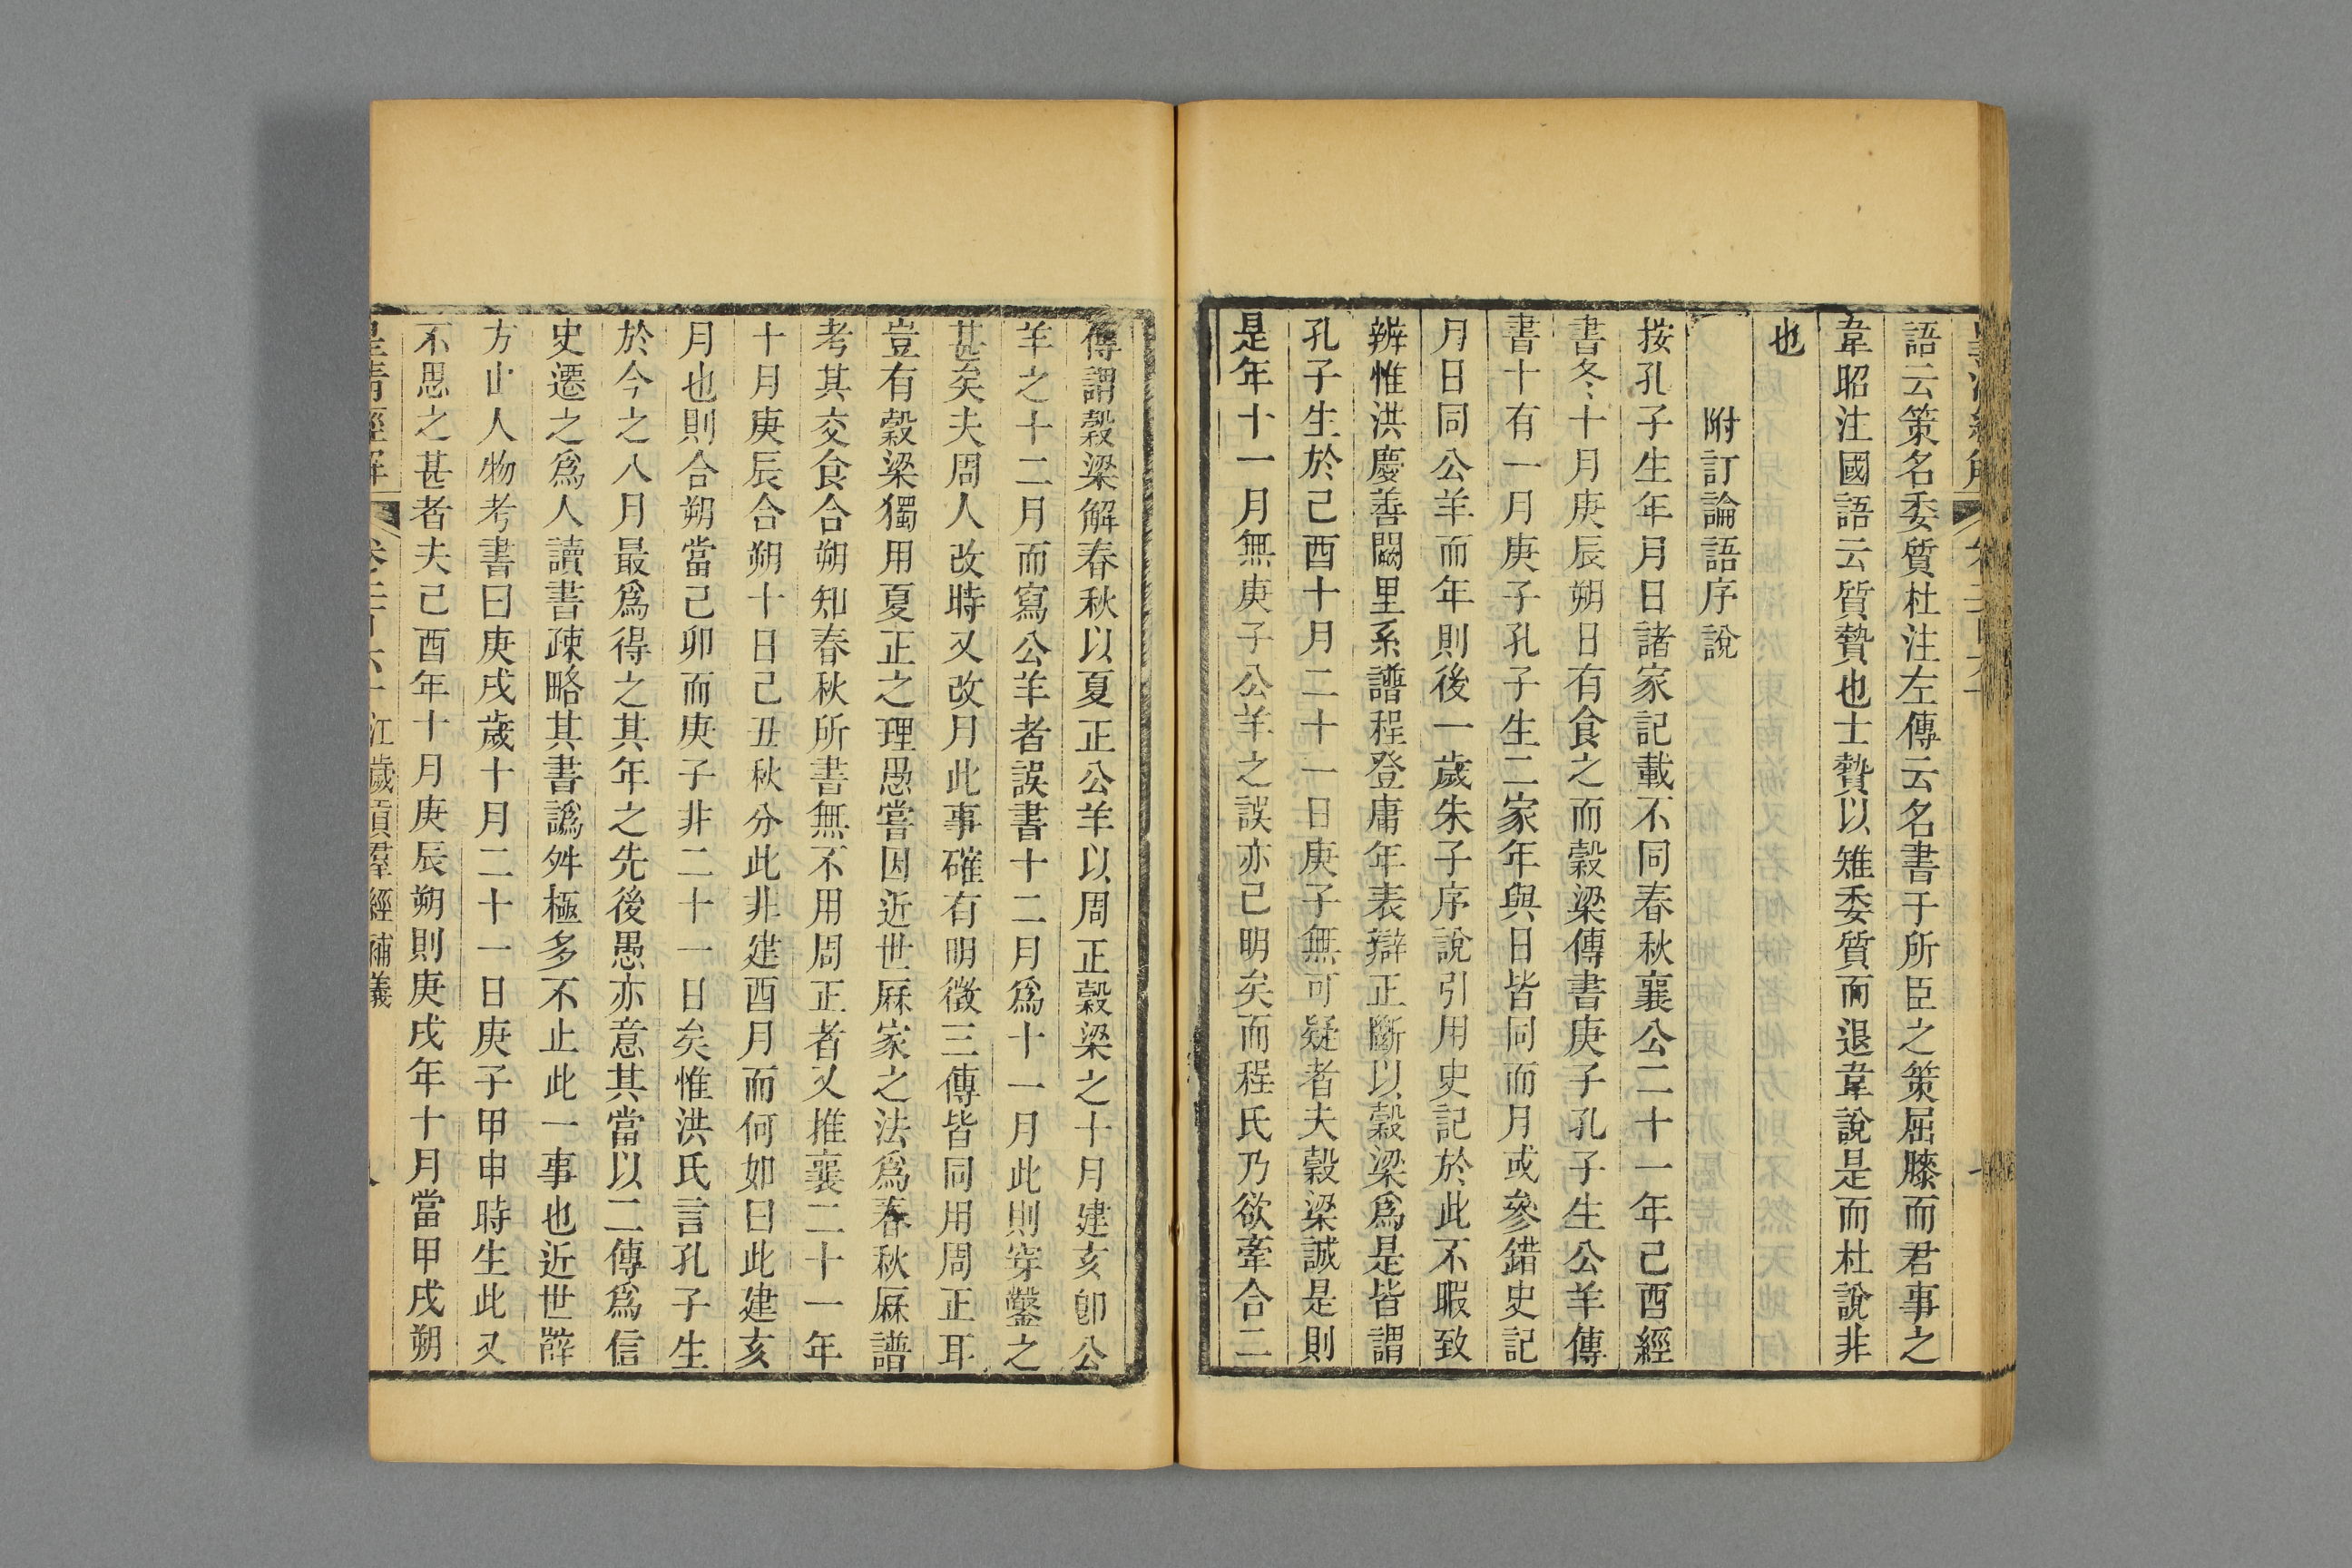 語云策名委質杜注左傳云名書于所臣之策屈膝而君事之
韋昭注國語云質贄也士贄以雉委質而退韋說是而杜說非
也
附訂論語序說
按孔子生年月日諸家記載不同春秋襄公二十一年己酉經
書冬十月庚辰朔日有食之而穀梁傳書庚子孔子生公羊傳
書十有一月庚子孔子生二家年與日皆同而月或參錯史記
月日同公羊而年則後一歲朱子序說引用史記於此不暇致
辨惟洪慶善闕里系譜程登庸年表辯正斷以穀梁爲是皆謂
孔子生於己酉十月二十一日庚子無可疑者夫穀梁誠是則
是年十一月無庚子公羊之誤亦已明矣而程氏乃欲牽合二
傳謂穀梁解春秋以夏正公羊以周正穀梁之十月建亥卽公
羊之十二月而寫公羊者誤書十二月爲十一月此則穿鑿之
甚矣夫周人改時又改月此事確有明徵三傳皆同用周正耳
豈有穀梁獨用夏正之理愚嘗因近世厤家之法爲春秋厤譜
考其交食合朔知春秋所書無不用周正者又推襄二十一年
十月庚辰合朔十日己丑秋分此非建酉月而何如曰此建亥
月也則合朔當己卯而庚子非二十一日矣惟洪氏言孔子生
於今之八月最爲得之其年之先後愚亦意其當以二傳爲信
史遷之爲人讀書疎略其書譌舛極多不止此一事也近世薛
方山人物考書曰庚戌歲十月二十一日庚子甲申時生此又
不思之甚者夫己酉年十月庚辰朔則庚戌年十月當甲戌朔
皇清經解 江歲貢羣經補義 八